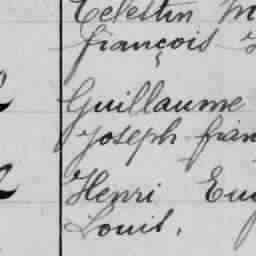 Celestin
françois
Guillaume
Joseph fran
Henri Eug
Louis.